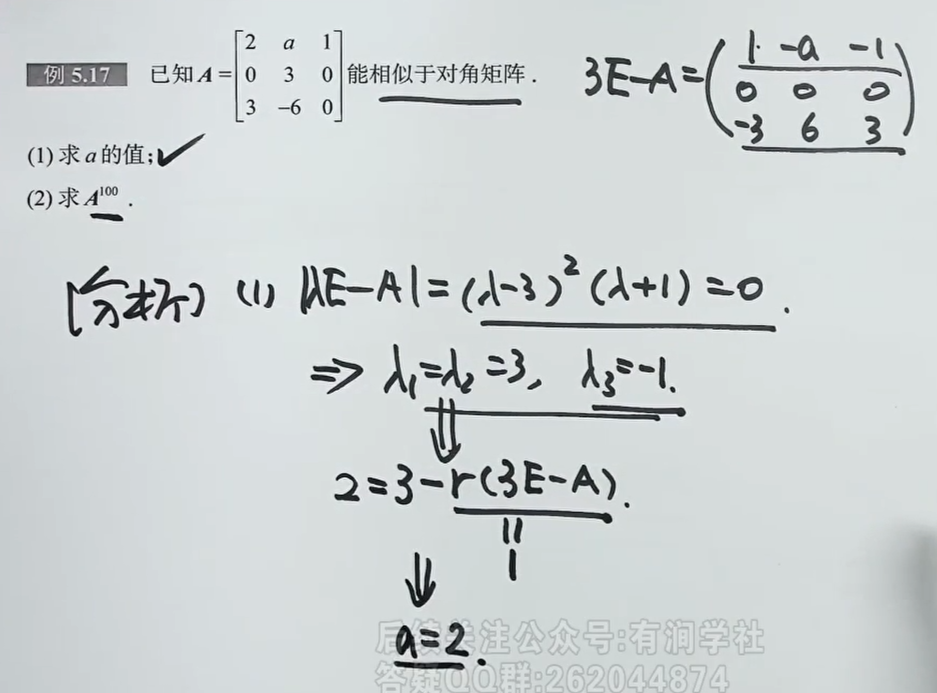 例 5.17 已知 A = [2 a 1; 0 3 0; 3 -6 0] 能相似于对角矩阵.
3E-A = (1 -a -1; 0 0 0; -3 6 3)
(1) 求 a 的值;✓
(2) 求 A^100 .
[分析] (1) |λE-A| = (λ-3)^2 (λ+1) = 0 .
⇒ λ₁=λ₂=3, λ₃=-1.
⇓
2=3-r(3E-A).
॥
1
⇓
a=2.
后续关注公众号:有润学社
答疑QQ群:262044874